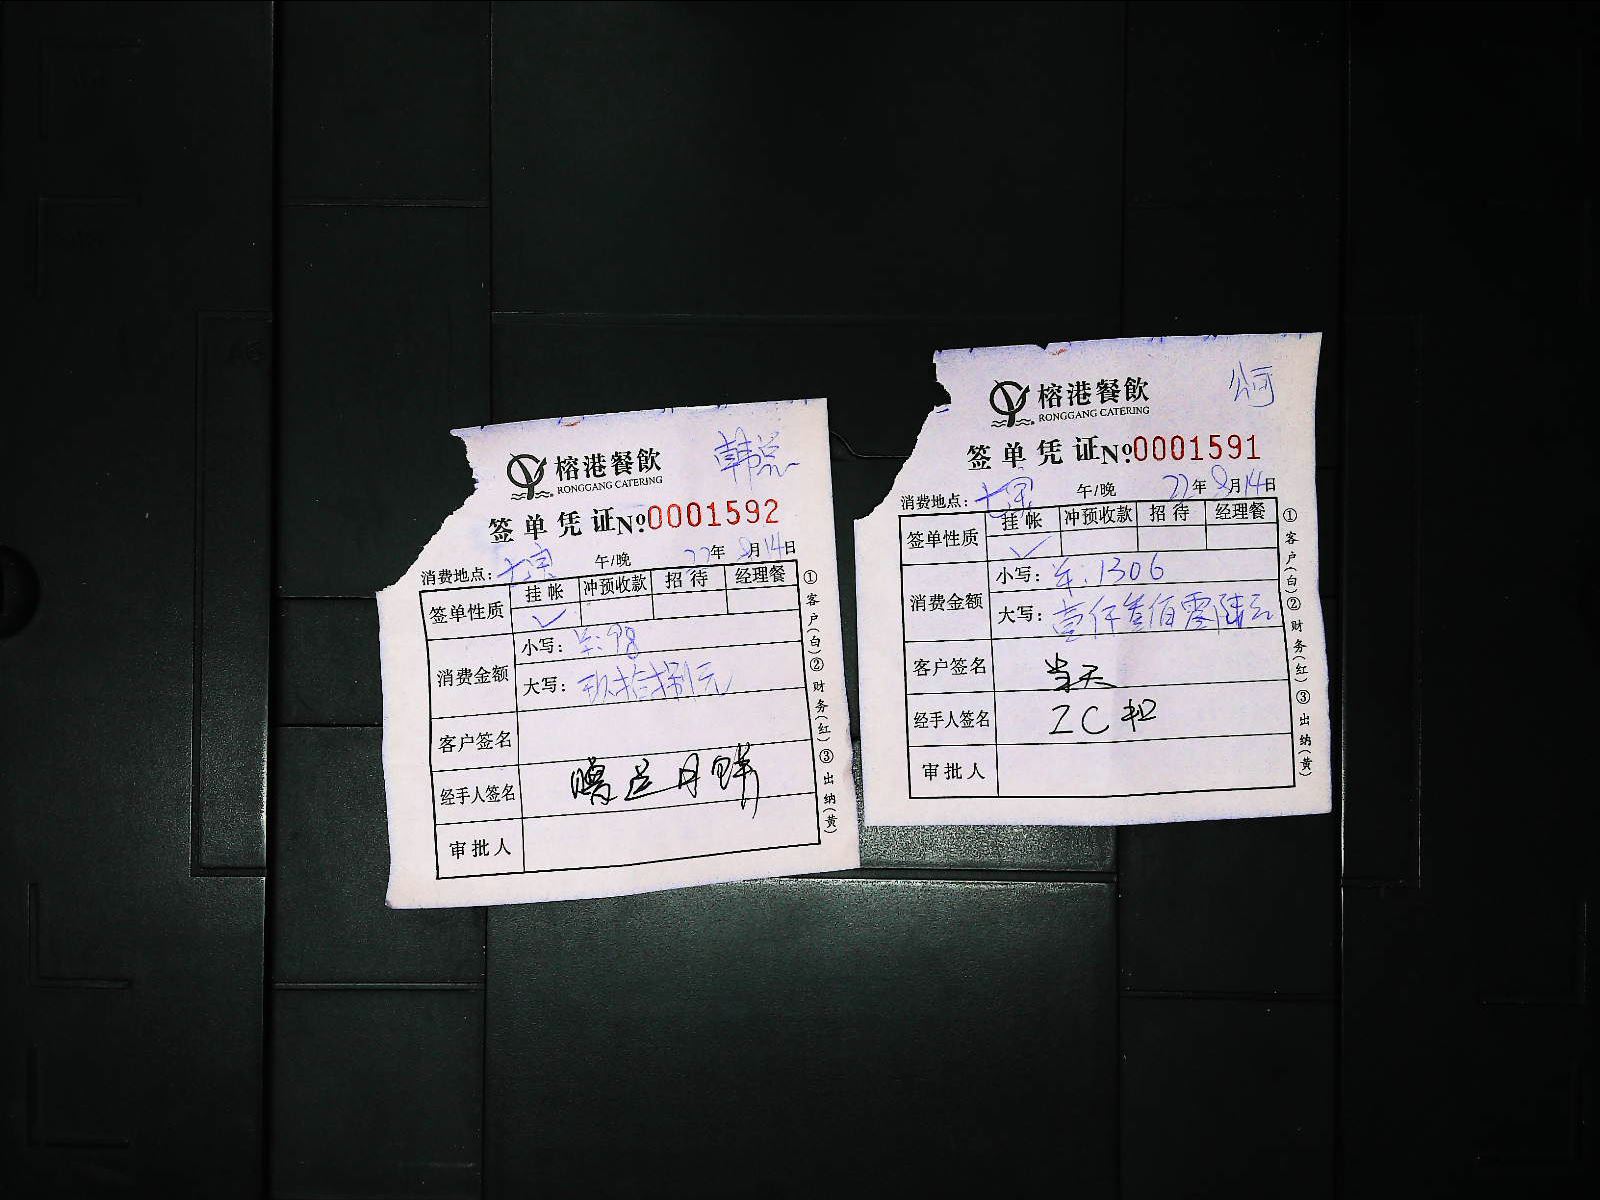 榕港餐飲
RONGGANG CATERING
韩总
签单凭证 №0001592
消费地点： 午/晚 22年8月14日
签单性质 挂帐 冲预收款 招待 经理餐
✓
消费金额 小写： 98
大写： 玖拾捌元
客户签名
经手人签名 赠送月饼
审批人
①客户(白)②财务(红)③出纳(黄)
榕港餐飲
RONGGANG CATERING
公司
签单凭证 №0001591
消费地点： 午/晚 22年8月14日
签单性质 挂帐 冲预收款 招待 经理餐
✓
消费金额 小写： 1306
大写： 壹仟叁佰零陆元
客户签名 当天
经手人签名
审批人
①客户(白)②财务(红)③出纳(黄)